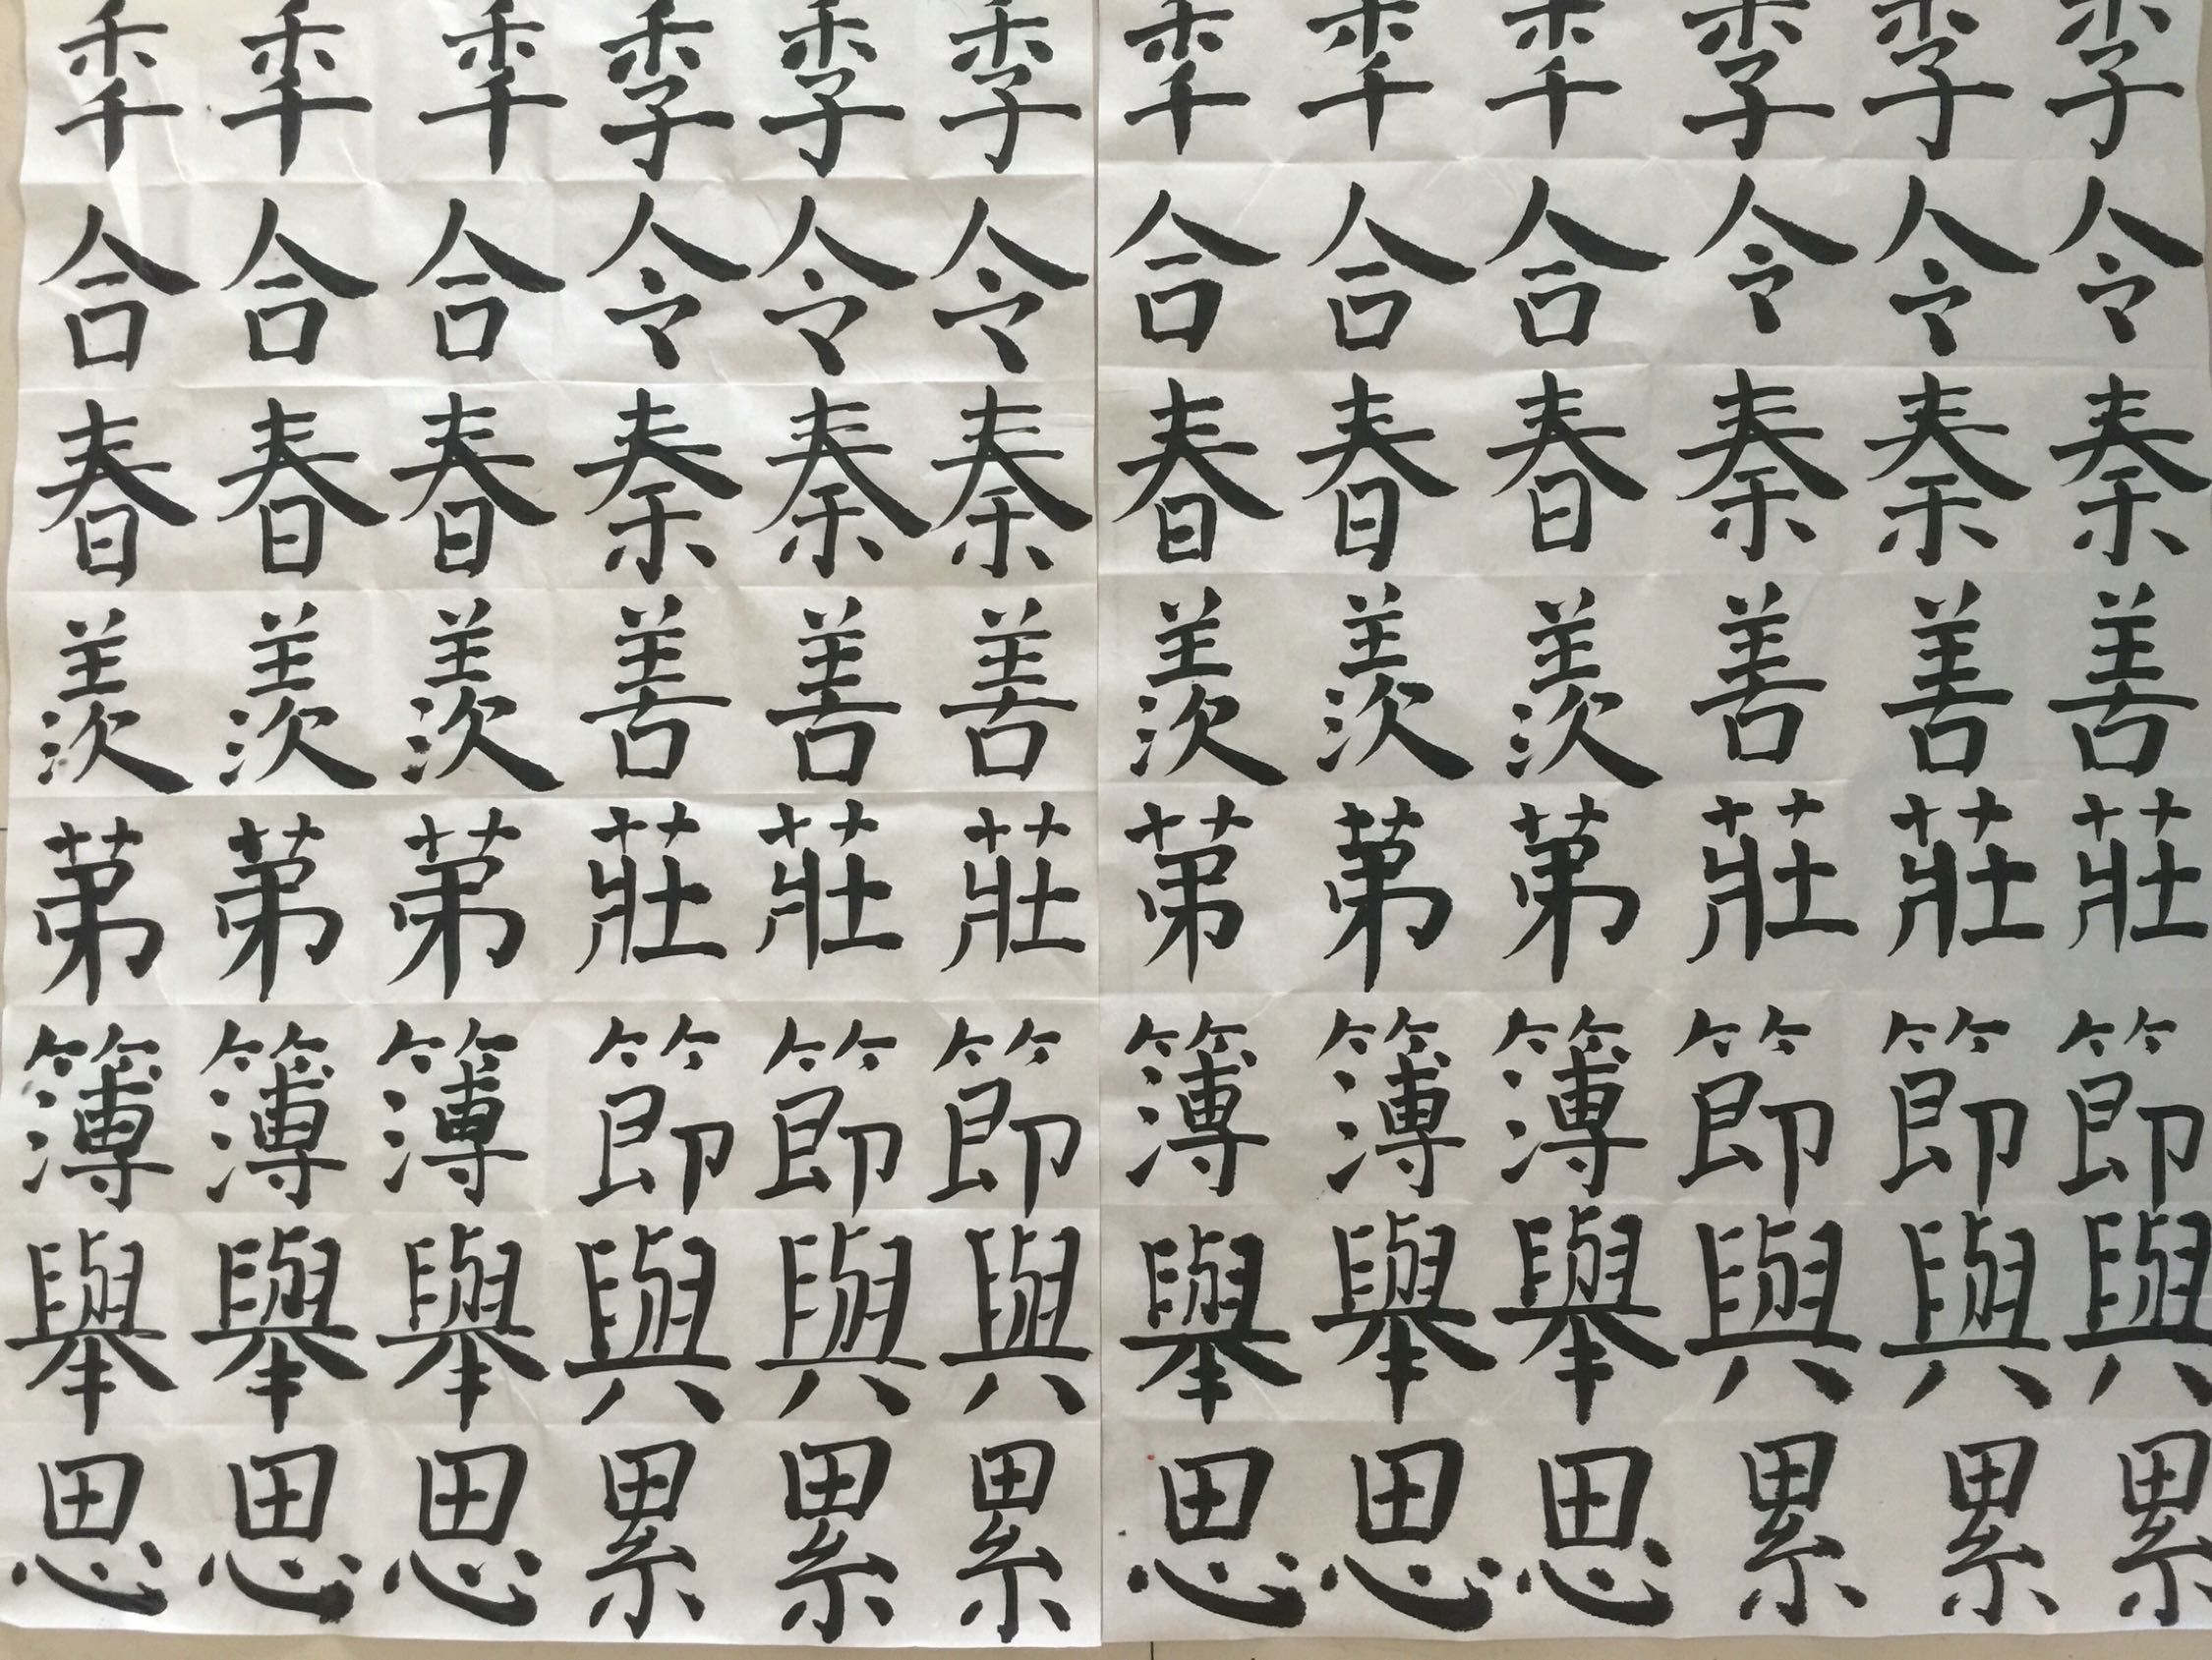 秊秊秊季季季秊秊秊季季季
合合合令令令合合合令令令
春春春秦秦秦春春春秦秦秦
羨羨羨善善善羨羨羨善善善
苐苐苐莊莊莊苐苐苐莊莊莊
簿簿簿節節節簿簿簿節節節
舉舉舉與與與舉舉舉與與與
思思思累累累思思思累累累